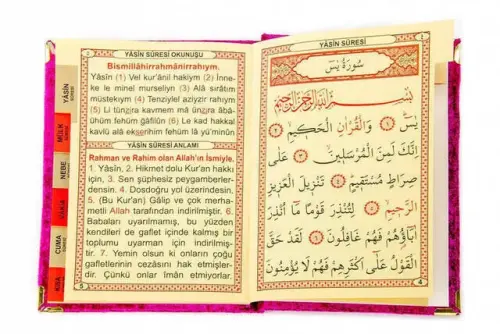 YÂSÎN SÛRESİ OKUNUŞU
Bismillâhirrahmânirrahıym.
Yâsîn (1) Vel kur'ânil hakiym (2) İnne-
ke le minel murseliyn (3) Alâ sırâtım
müstekıym (4) Tenziylel aziyzir rahiym
(5) Li tünzira kavmem mâ ünzira âbâ-
ühüm fehüm gâfilûn (6) Le kad hakkal
kavlü alâ ekserihim fehüm lâ yü'minûn
YÂSİN SÛRESİ ANLAMI
Rahman ve Rahim olan Allah'ın İsmiyle.
1. Yâsîn, 2. Hikmet dolu Kur'an hakkı
için, 3. Sen şüphesiz peygamberler-
densin. 4. Dosdoğru yol üzerindesin.
5. (Bu Kur'an) Gâlip ve çok merha-
metli Allah tarafından indirilmiştir. 6.
Babaları uyarılmamış, bu yüzden
kendileri de gaflet içinde kalmış bir
toplumu uyarman için indirilmiş-
tir. 7. Yemin olsun ki onların çoğu
gafletlerinin cezâsını hak etmişler-
dir. Çünkü onlar îman etmiyorlar.
5
YÂSİN
MÜLK
NEBE
VAKIA
CUMA
KISA
YÂSİN SÛRESİ
سُورَةُ يٰسٓ
بِسْمِ اللّٰهِ الرَّحْمٰنِ الرَّحِيمِ
يٰسٓ ﴿١﴾ وَالْقُرْاٰنِ الْحَكِيمِ ﴿٢﴾
اِنَّكَ لَمِنَ الْمُرْسَلِينَ ﴿٣﴾ عَلٰى
صِرَاطٍ مُسْتَقِيمٍ ﴿٤﴾ تَنْزِيلَ الْعَزِيزِ
الرَّحِيمِ ﴿٥﴾ لِتُنْذِرَ قَوْمًا مَٓا اُنْذِرَ
اٰبَٓاؤُهُمْ فَهُمْ غَافِلُونَ ﴿٦﴾ لَقَدْ حَقَّ
الْقَوْلُ عَلٰٓى اَكْثَرِهِمْ فَهُمْ لَا يُؤْمِنُونَ
4